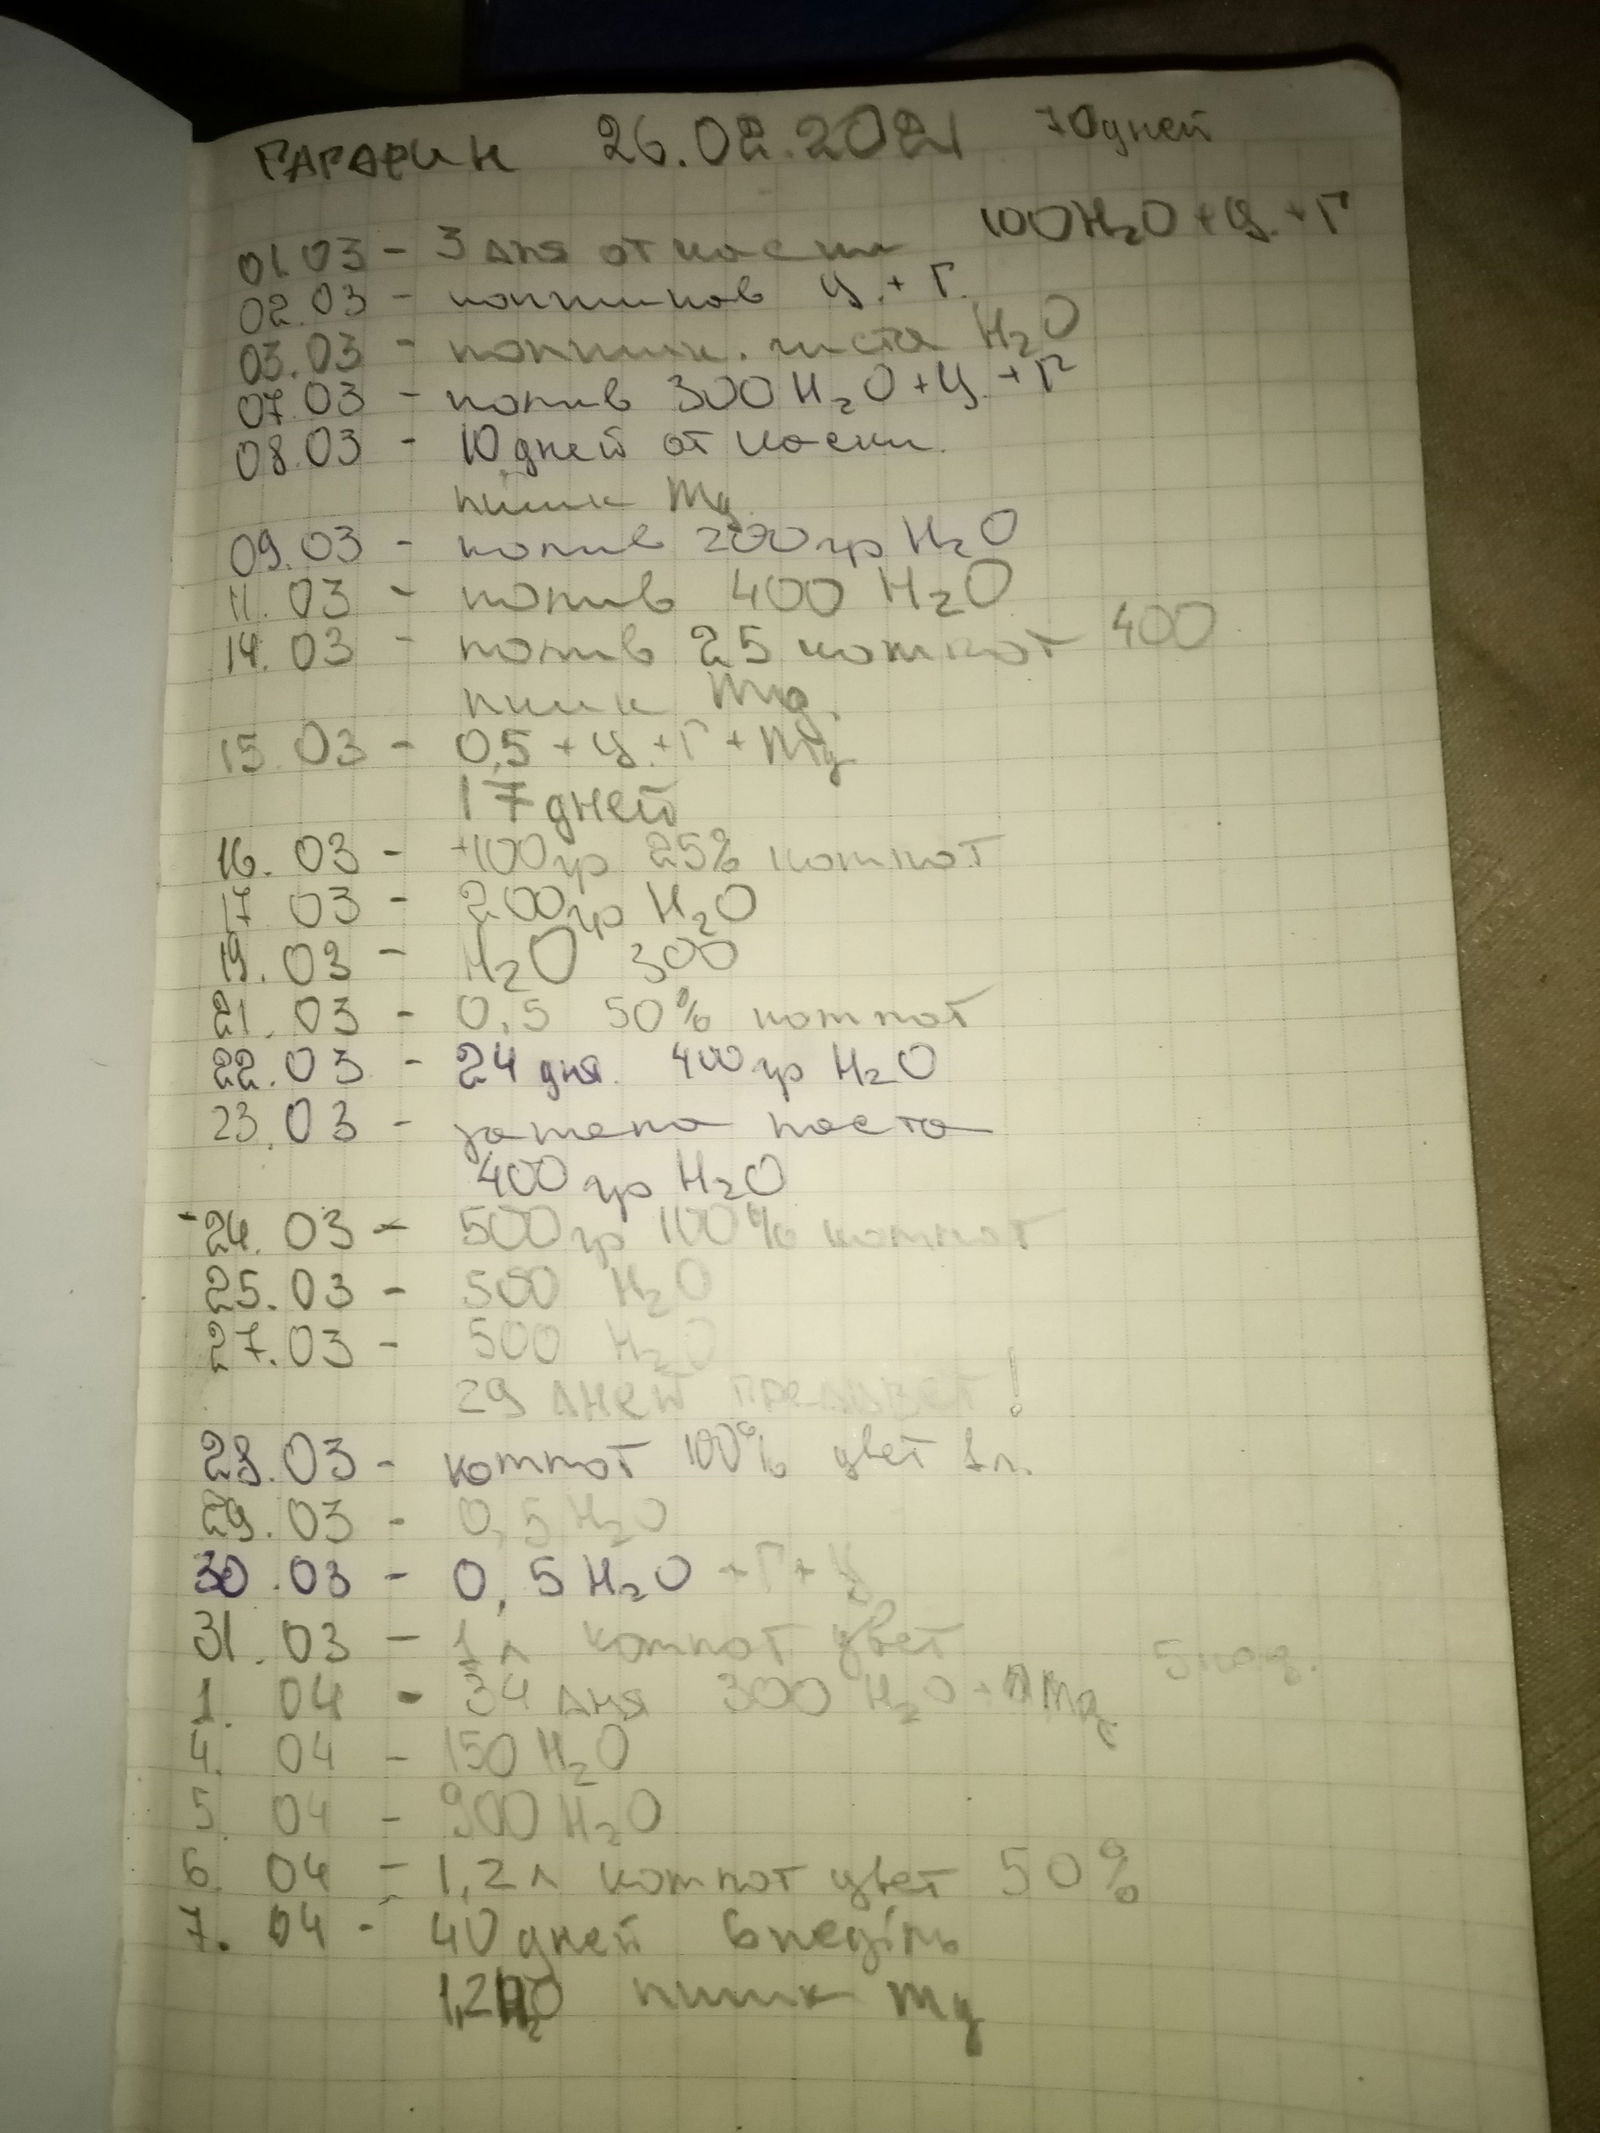 ГАГАРИН 26.02.2021 70дней
100 H₂O + Ц. + Г
01.03 - 3 дня от каски
02.03 - Ц. + Г.
03.03 - листа H₂O
07.03 - полив 300 H₂O + Ц. + Г
08.03 - 10 дней от каски.
пшик Mg.
09.03 - полив 200 гр H₂O
11.03 - полив 400 H₂O
14.03 - полив 25 компот 400
пшик Mg.
15.03 - 0,5 + Ц. + Г + Mg
17 дней
16.03 - +100 гр 25% компот
17.03 - 200 гр H₂O
19.03 - H₂O 300
21.03 - 0,5 50% компот
22.03 - 24 дня. 400 гр H₂O
23.03 - замена места
400 гр H₂O
24.03 - 500 гр 100% компот
25.03 - 500 H₂O
27.03 - 500 H₂O
29 дней предцвет!
28.03 - компот 100% цвет 1л.
29.03 - 0,5 H₂O
30.03 - 0,5 H₂O + Г + Ц
31.03 - 1л компот цвет
1.04 - 34 дня 300 H₂O + Mg 5 нед.
4.04 - 150 H₂O
5.04 - 900 H₂O
6.04 - 1,2л компот цвет 50%
7.04 - 40 дней 6 недiль
1,2 H₂O пшик Mg